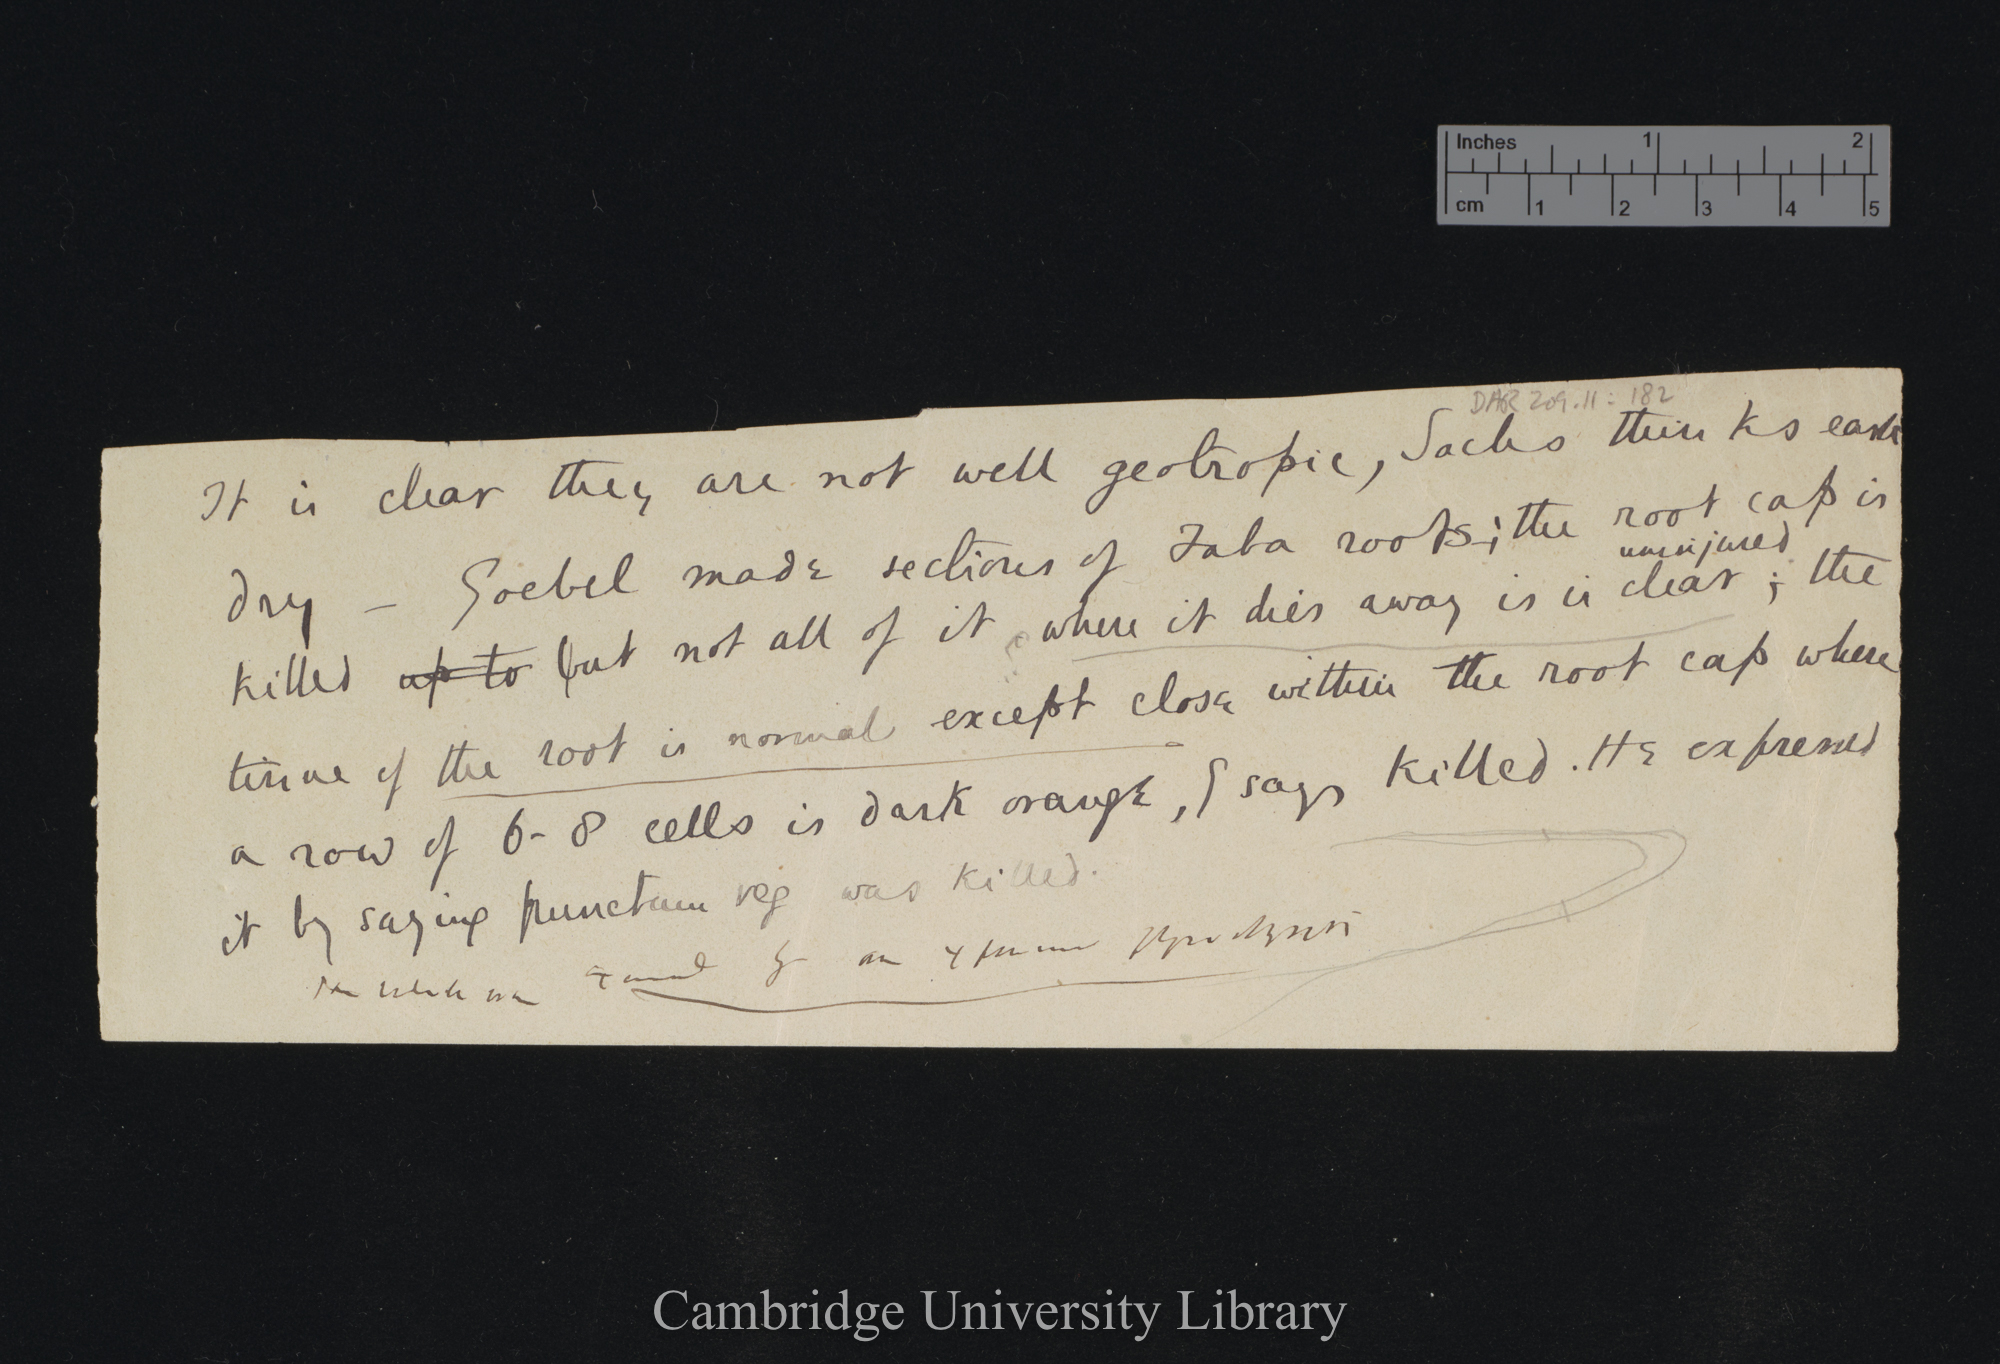 Inches 1 2
cm 1 2 3 4 5
DAR 209.11: 182
It is clear they are not well geotropic, Sachs thinks earth
dry – Goebel made sections of Faba roots; the root cap is
uninjured
killed up to but not all of it where it dies away is is clear; the
tissue of the root is normal except close within the root cap where
a row of 6-8 cells is dark orange, G says killed. He expressed
it by saying punctum veg was killed.
by an
Cambridge University Library